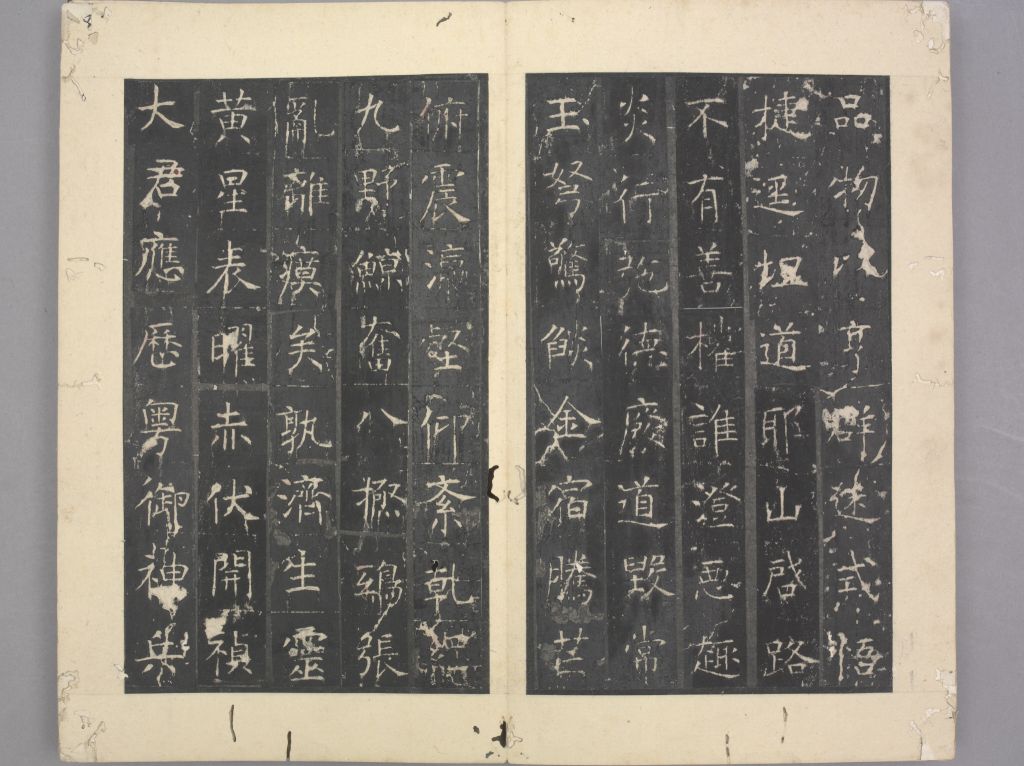 品物以亨群迷式悟
捷坦道耶山啓路
不有善權誰澄惡趣
炎行弛德廢道毀常
玉弩驚餤金宿騰芒
俯震瀛壑仰紊乾
九野鯨奮八極鴞張
亂離瘼矣孰濟生靈
黃星表曜赤伏開禎
大君應歷粵御神兵